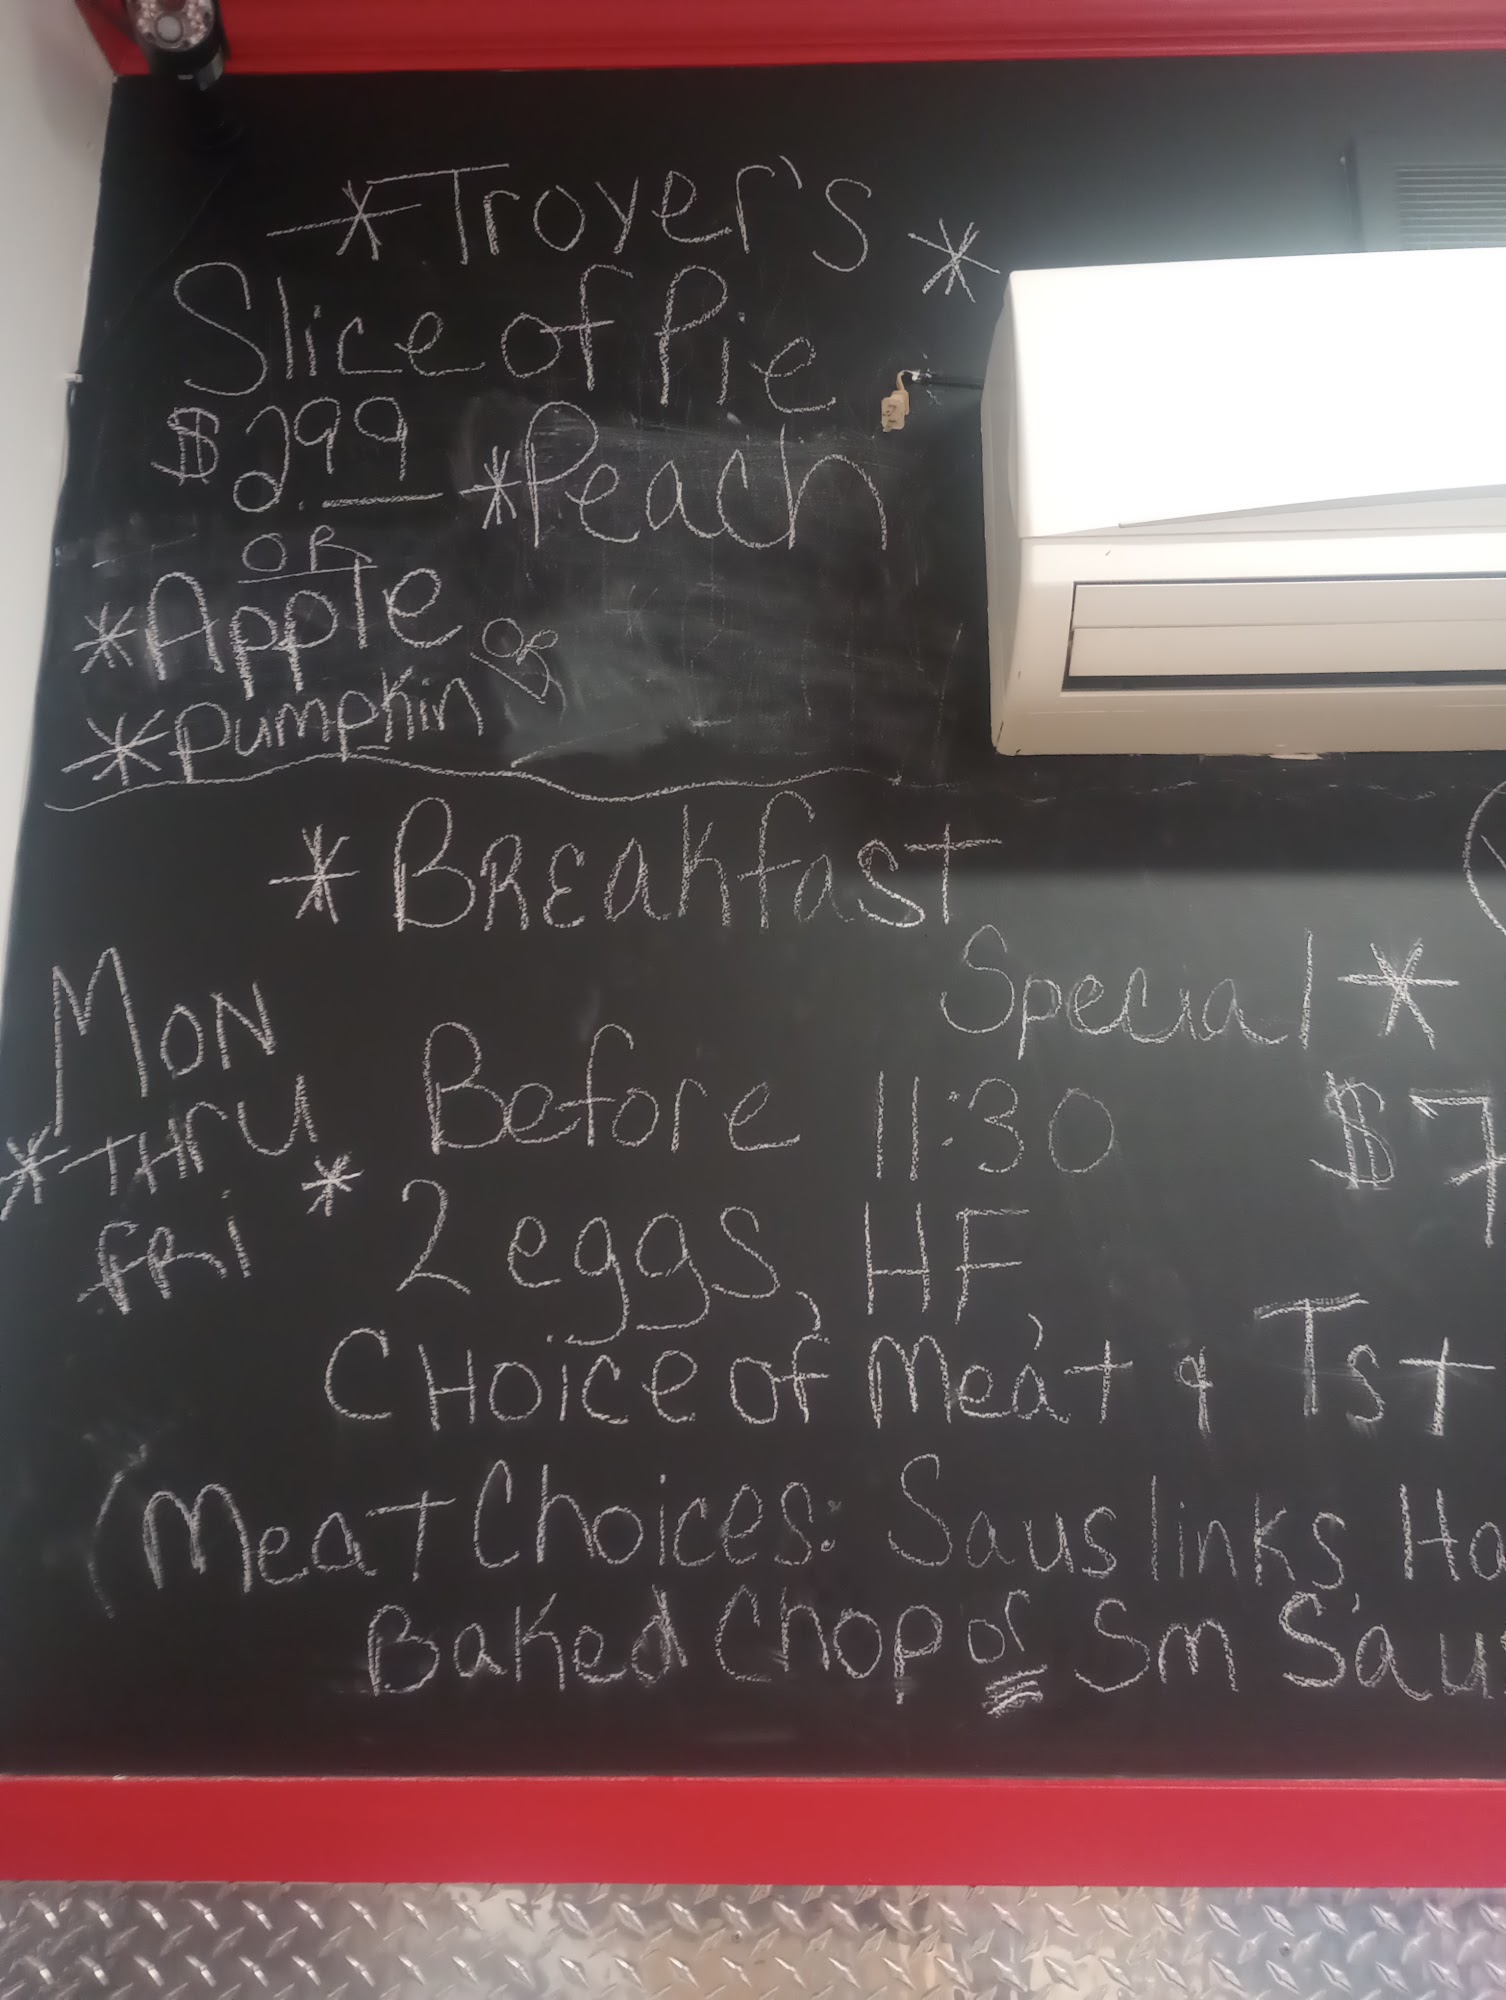 *Troyer's *
Slice of Pie
$2.99 *Peach
OR
*Apple
*Pumpkin or
*Breakfast
Special *
Mon
*THRU
FRi *
Before 11:30 $7
2 eggs, HF,
CHoice of Meat & Tst
(Meat Choices: Saus links Ha
Baked Chop or Sm Saus